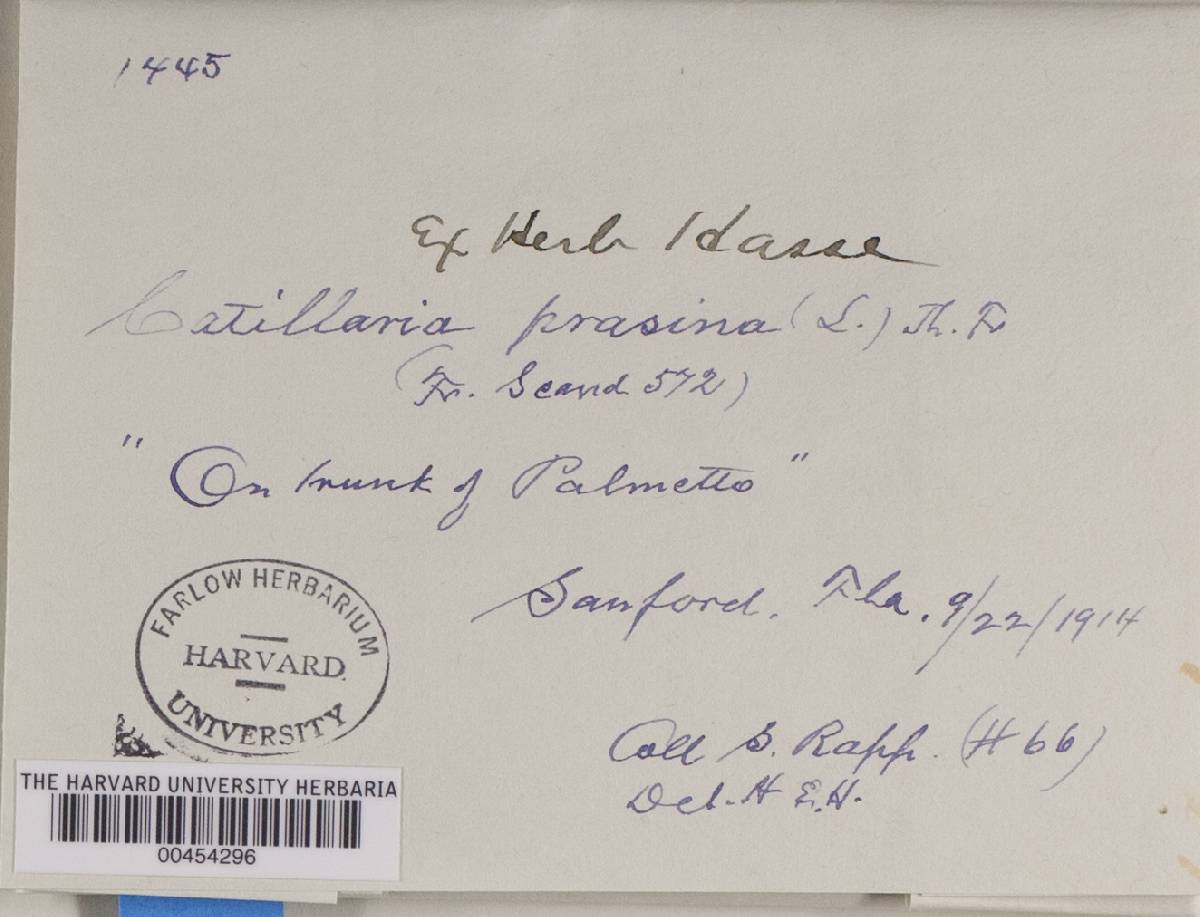 1445
Ex Herb Hasse
Catillaria prasina (L.) Th. Fr
(Fr. Scand 572)
" On trunk of Palmetto "
Sanford. Fla. 9/22/1914
FARLOW HERBARIUM
HARVARD
UNIVERSITY
Coll S. Rapp. (# 66)
Det. H E.H.
THE HARVARD UNIVERSITY HERBARIA
00454296